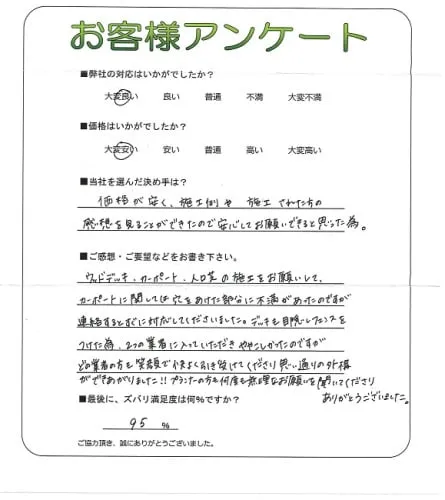 お客様アンケート
■弊社の対応はいかがでしたか?
大変良い 良い 普通 不満 大変不満
■価格はいかがでしたか?
大変安い 安い 普通 高い 大変高い
■当社を選んだ決め手は?
価格が安く、施工例や 施工された方の
感想を見ることができたので安心してお願いできると思った為。
■ご感想・ご要望などをお書き下さい。
ウッドデッキ、カーポート、人工芝の施工をお願いして、
カーポートに関しては穴をあけた部分に不満があったのですが
連絡するとすぐに対応してくださいました。デッキも目隠しフェンスを
つけた為、2つの業者に入っていただき ややこしかったのですが
どの業者の方も笑顔で快よく引き受けてくださり思い通りの外構
ができあがりました!!プランナーの方も何度も無理なお願いを聞いてくださり
ありがとうございました。
■最後に、ズバリ満足度は何%ですか?
95 %
ご協力頂き、誠にありがとうございました。